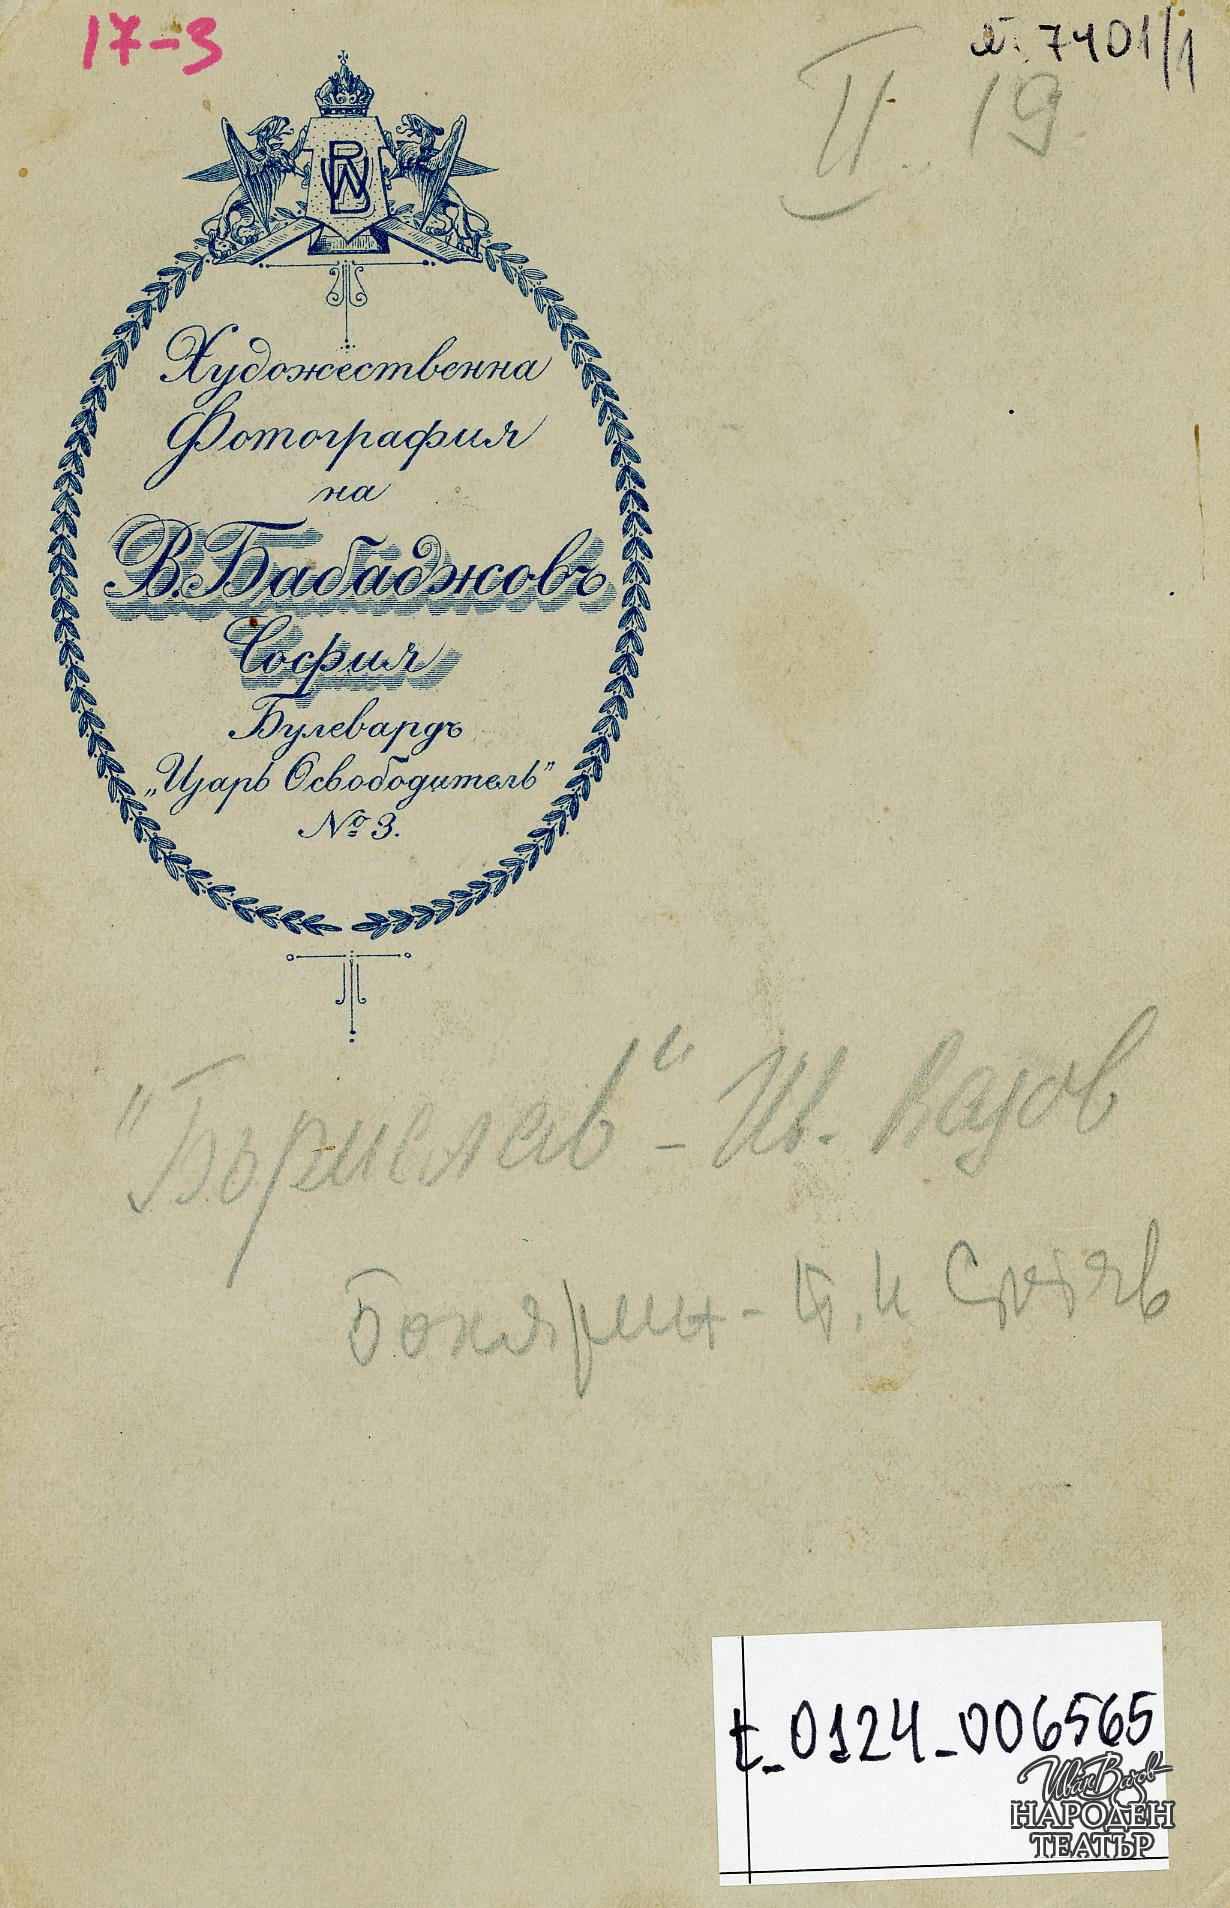 17-3
7401/1
II. 19
Художественна
Фотография
на
В. Бабаджовъ
София
Булевардъ
„Царь Освободитель"
№ 3.
"Борислав" - Ив. Вазов
t_0124_006565
Иван Вазов
НАРОДЕН
ТЕАТЪР